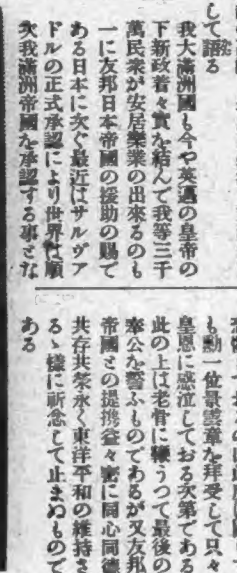 して語る
我大滿洲國も今や英邁の皇帝の
下新政着々實を結んで我等三千
萬民衆が安居樂業の出來るのも
一に友邦日本帝國の援助の賜で
ある日本に次ぐ最近はサルヴア
ドルの正式承認により世界は順
次我滿洲帝國を承認する事とな
も勳一位景雲章を拜受して只々
皇恩に感泣しておる次第である
此の上は老骨に鞭うつて最後の
奉公を誓ふものであるが又友邦
帝國との提携益々密に同心同德
共存共榮永く東洋平和の維持さ
るゝ樣に祈念して止まぬもので
ある